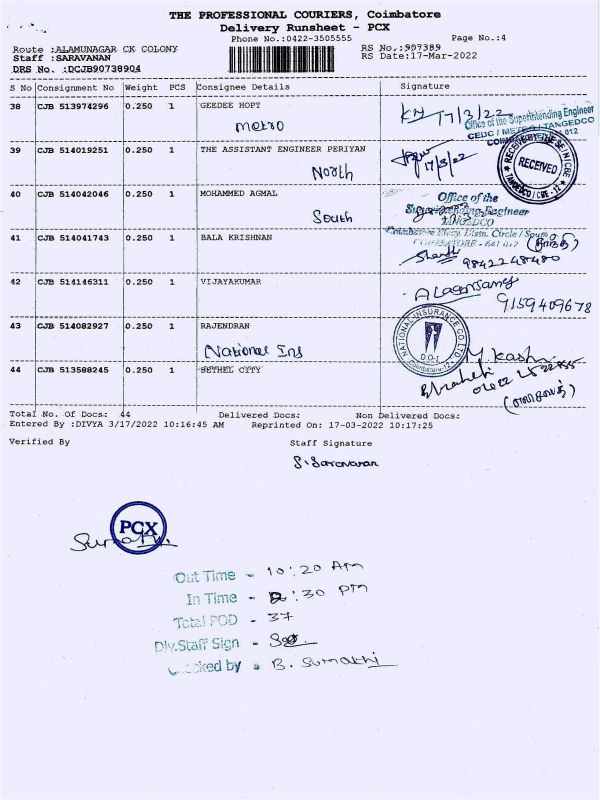 THE PROFESSIONAL COURIERS, Coimbatore
Delivery Runsheet - PCX
Phone No.:0422-3505555 Page No.:4
Route :ALAMUNAGAR CK COLONY RS No.:907389
Staff :SARAVANAN RS Date:17-Mar-2022
DRS No. :DCJB90738904
S No Consignment No Weight PCS Consignee Details Signature
38 CJB 513974296 0.250 1 GEEDEE HOPT 17/3/22
Metro
Office of the Superintending Engineer
CEDC / METRO / TANGEDCO
012
39 CJB 514019251 0.250 1 THE ASSISTANT ENGINEER PERIYAN 17/3/22
North
RECEIVED
40 CJB 514042046 0.250 1 MOHAMMED AGMAL
South
Office of the
Superintending Engineer
TANGEDCO
41 CJB 514041743 0.250 1 BALA KRISHNAN
9842248480
42 CJB 514146311 0.250 1 VIJAYAKUMAR
9159409678
43 CJB 514082927 0.250 1 RAJENDRAN
National Ins
NATIONAL INSURANCE CO. LTD.
D.O.I
44 CJB 513588245 0.250 1 BETHEL CITY
Total No. Of Docs: 44 Delivered Docs: Non Delivered Docs:
Entered By :DIVYA 3/17/2022 10:16:45 AM Reprinted On: 17-03-2022 10:17:25
Verified By Staff Signature
S. Saravanan
PCX
Sumathi
Out Time - 10:20 Am
In Time - 2:30 Pm
Total POD - 37
Dlv.Staff Sign -
Checked by B. Sumathi